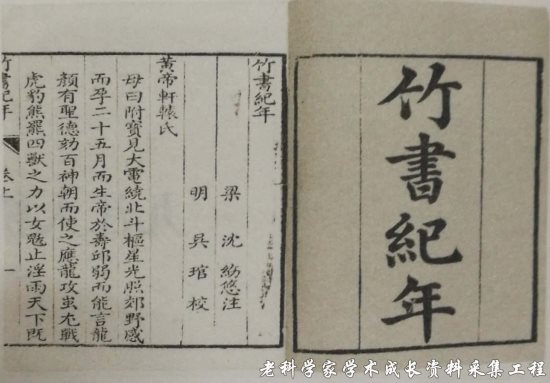 竹書紀年
竹書紀年
梁 沈約附注
明 吳琯校
黃帝軒轅氏
母曰附寶見大電繞北斗樞星光照郊野感
而孕二十五月而生帝於壽邱弱而能言龍
顏有聖德劾百神朝而使之應龍攻蚩尤戰
虎豹熊羆四獸之力以女魃止淫雨天下既
竹書紀年 卷上 一
老科学家学术成长资料采集工程